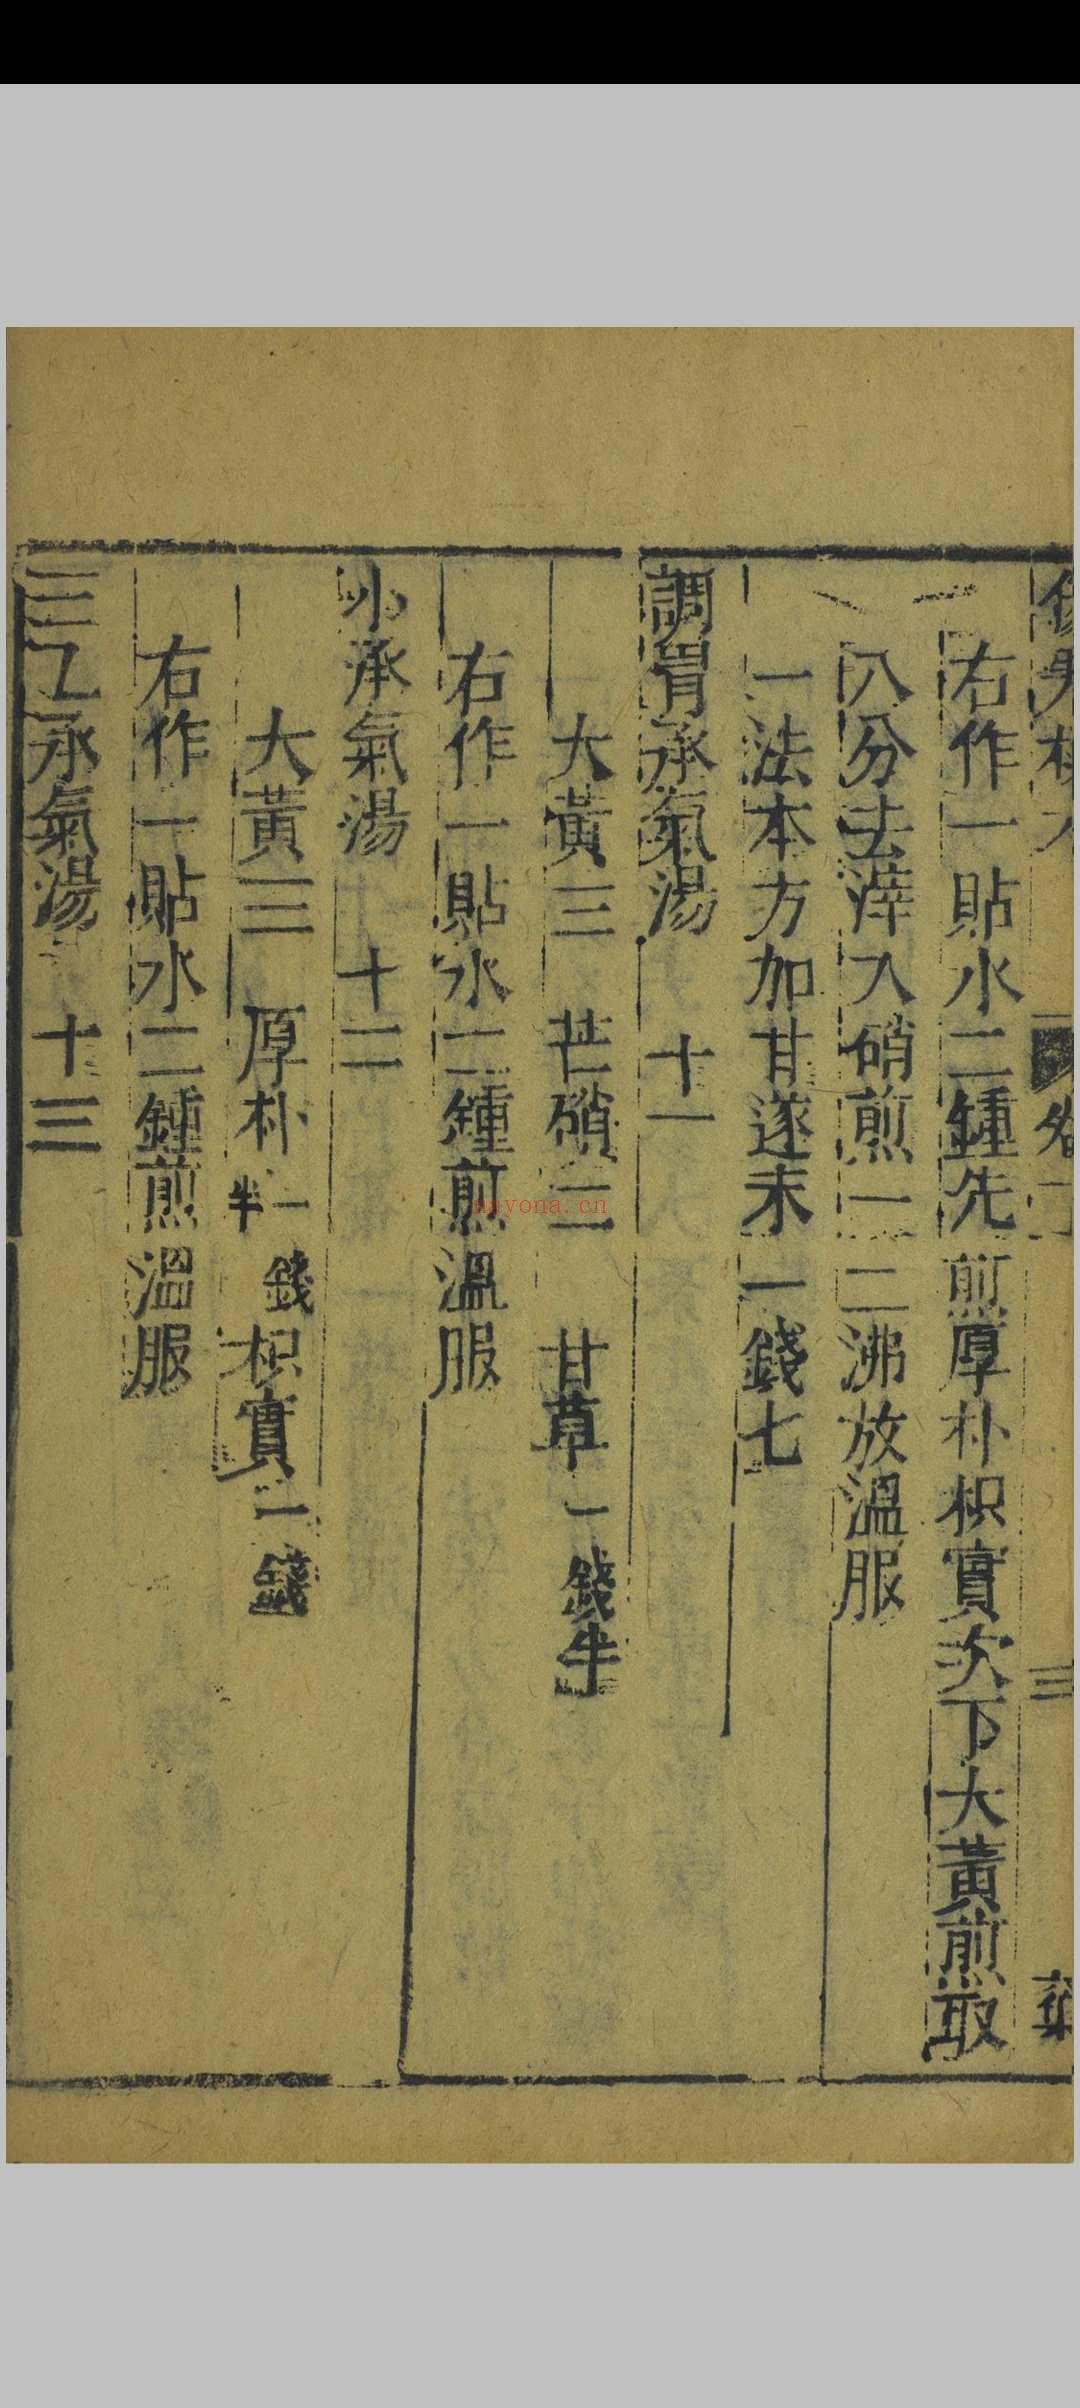 右作一貼水二鍾先煎厚朴枳實次下大黃煎取
八分去滓入硝煎一二沸放溫服
一法本方加甘遂末一錢七
調胃承氣湯 十一
大黃三 芒硝二 甘草一錢半
右作一貼水二鍾煎溫服
小承氣湯 十二
大黃三 厚朴一錢半 枳實一錢
右作一貼水二鍾煎溫服
三乙承氣湯 十三
nayona.cn